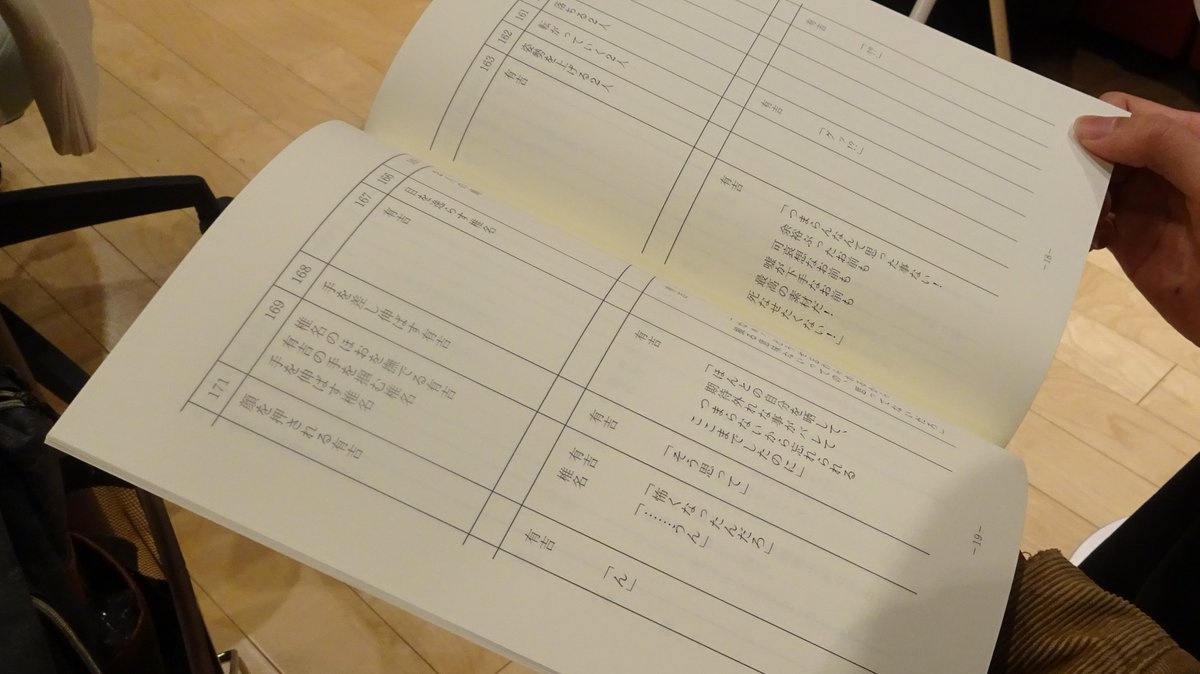 161
落ちる2人
162
転がっていく2人
163
姿勢を上げる2人
有吉
有吉
有吉
有吉
「つまらんなんて思った事ない！
余裕ぶったお前も
可哀想なお前も
嘘が下手なお前も
最高の素材だ！
死なせたくない！」
-18-
166
目を逸らす椎名
167
有吉
有吉
「ほんとの自分を晒して、
期待外れな事がバレて
つまらないから忘れられる
ここまでしたのに」
168
手を差し伸ばす有吉
有吉
「そう思って」
169
椎名のほおを撫でる有吉
有吉の手を掴む椎名
手を伸ばす椎名
有吉
「怖くなったんだろ」
椎名
「……うん」
171
顔を押される有吉
有吉
「ん」
-19-